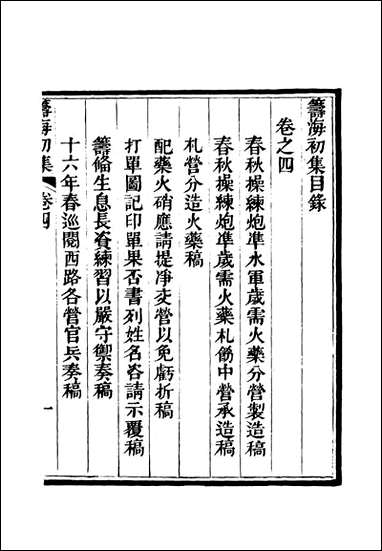 籌海初集目錄
卷之四
春秋操練炮準水軍歲需火藥分營製造稿
春秋操練炮準歲需火藥札飭中營承造稿
札營分造火藥稿
配藥火硝應請提凈交營以免虧折稿
打單圖記印單果否書列姓名咨請示覆稿
籌俻生息長資練習以嚴守禦奏稿
十六年春巡閱西路各營官兵奏稿
籌海初集
卷四
一